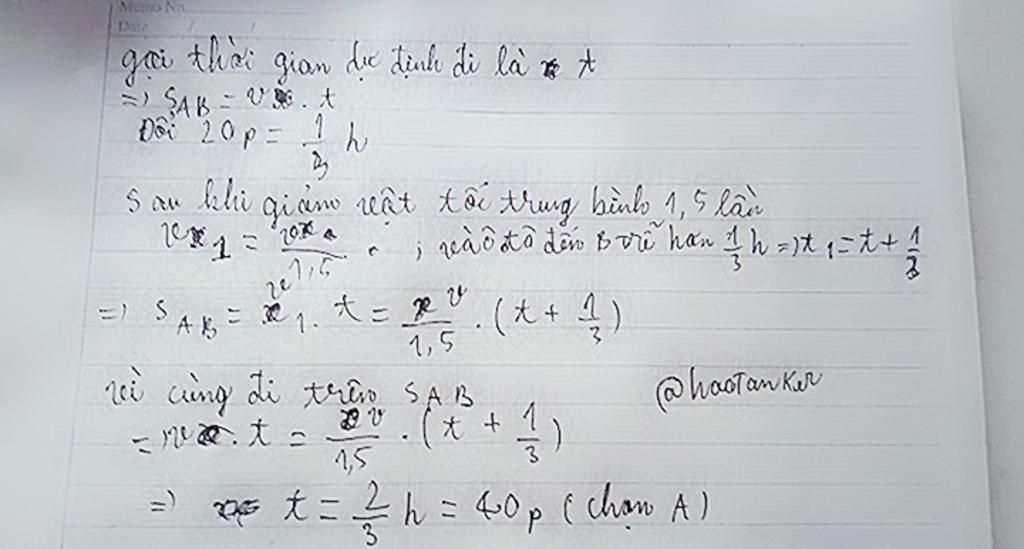 Memo No.
Date / /
gọi thời gian dự định đi là t
=> SAB = v . t
Đổi 20p = 1/3 h
Sau khi giảm vật tốc trung bình 1,5 lần
v1 = v/1,5 ; và ô tô đến B trễ hơn 1/3 h => t1 = t + 1/3
=> SAB = v1 . t = v/1,5 . (t + 1/3)
vì cùng đi trên SAB
@haoTanKer
= v . t = v/1,5 . (t + 1/3)
=> t = 2/3 h = 40p (chọn A)